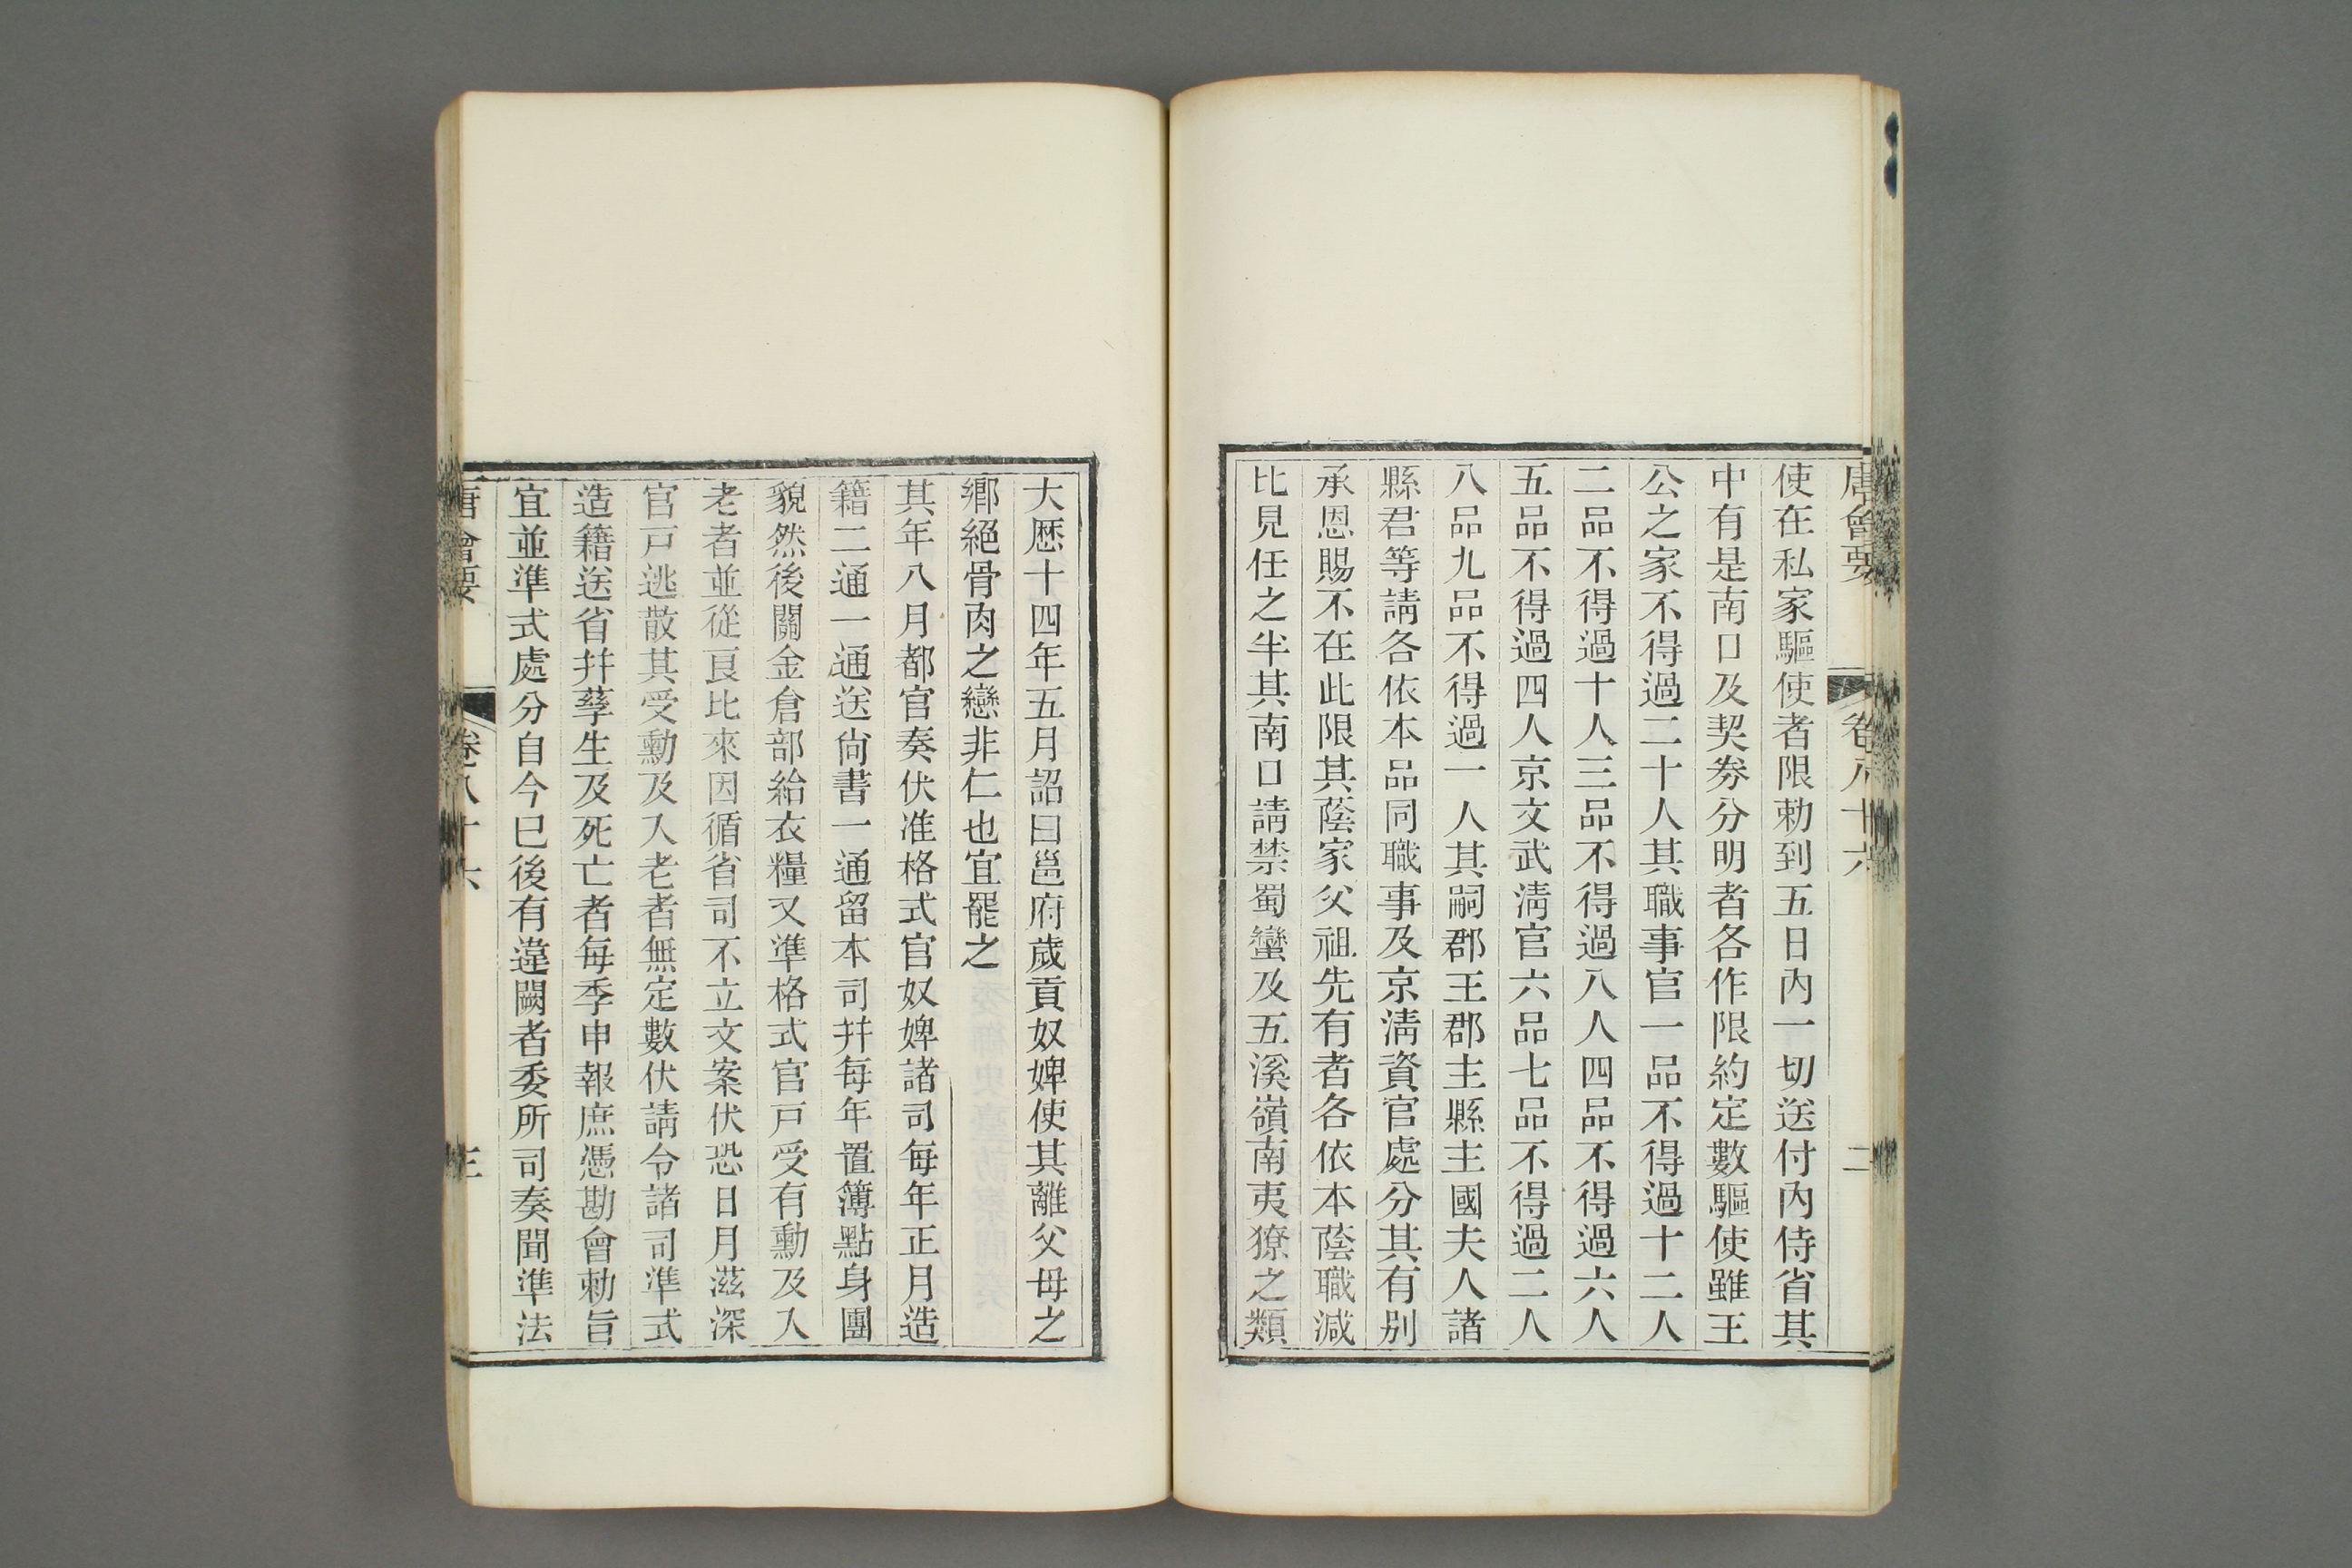 唐會要 卷八十六 二
使在私家驅使者限勅到五日內一切送付內侍省其
中有是南口及契券分明者各作限約定數驅使雖王
公之家不得過二十人其職事官一品不得過十二人
二品不得過十人三品不得過八人四品不得過六人
五品不得過四人京文武淸官六品七品不得過二人
八品九品不得過一人其嗣郡王郡主縣主國夫人諸
縣君等請各依本品同職事及京淸資官處分其有別
承恩賜不在此限其蔭家父祖先有者各依本蔭職減
比見任之半其南口請禁蜀蠻及五溪嶺南夷獠之類
大厯十四年五月詔曰邕府歲貢奴婢使其離父母之
鄉絕骨肉之戀非仁也宜罷之
其年八月都官奏伏准格式官奴婢諸司每年正月造
籍二通一通送尙書一通留本司幷每年置簿點身團
貌然後關金倉部給衣糧又準格式官戸受有勳及入
老者並從良比來因循省司不立文案伏恐日月滋深
官戸逃散其受勳及入老者無定數伏請令諸司準式
造籍送省幷孳生及死亡者每季申報庶憑勘會勅旨
宜並準式處分自今已後有違闕者委所司奏聞準法
唐會要 卷八十六 三